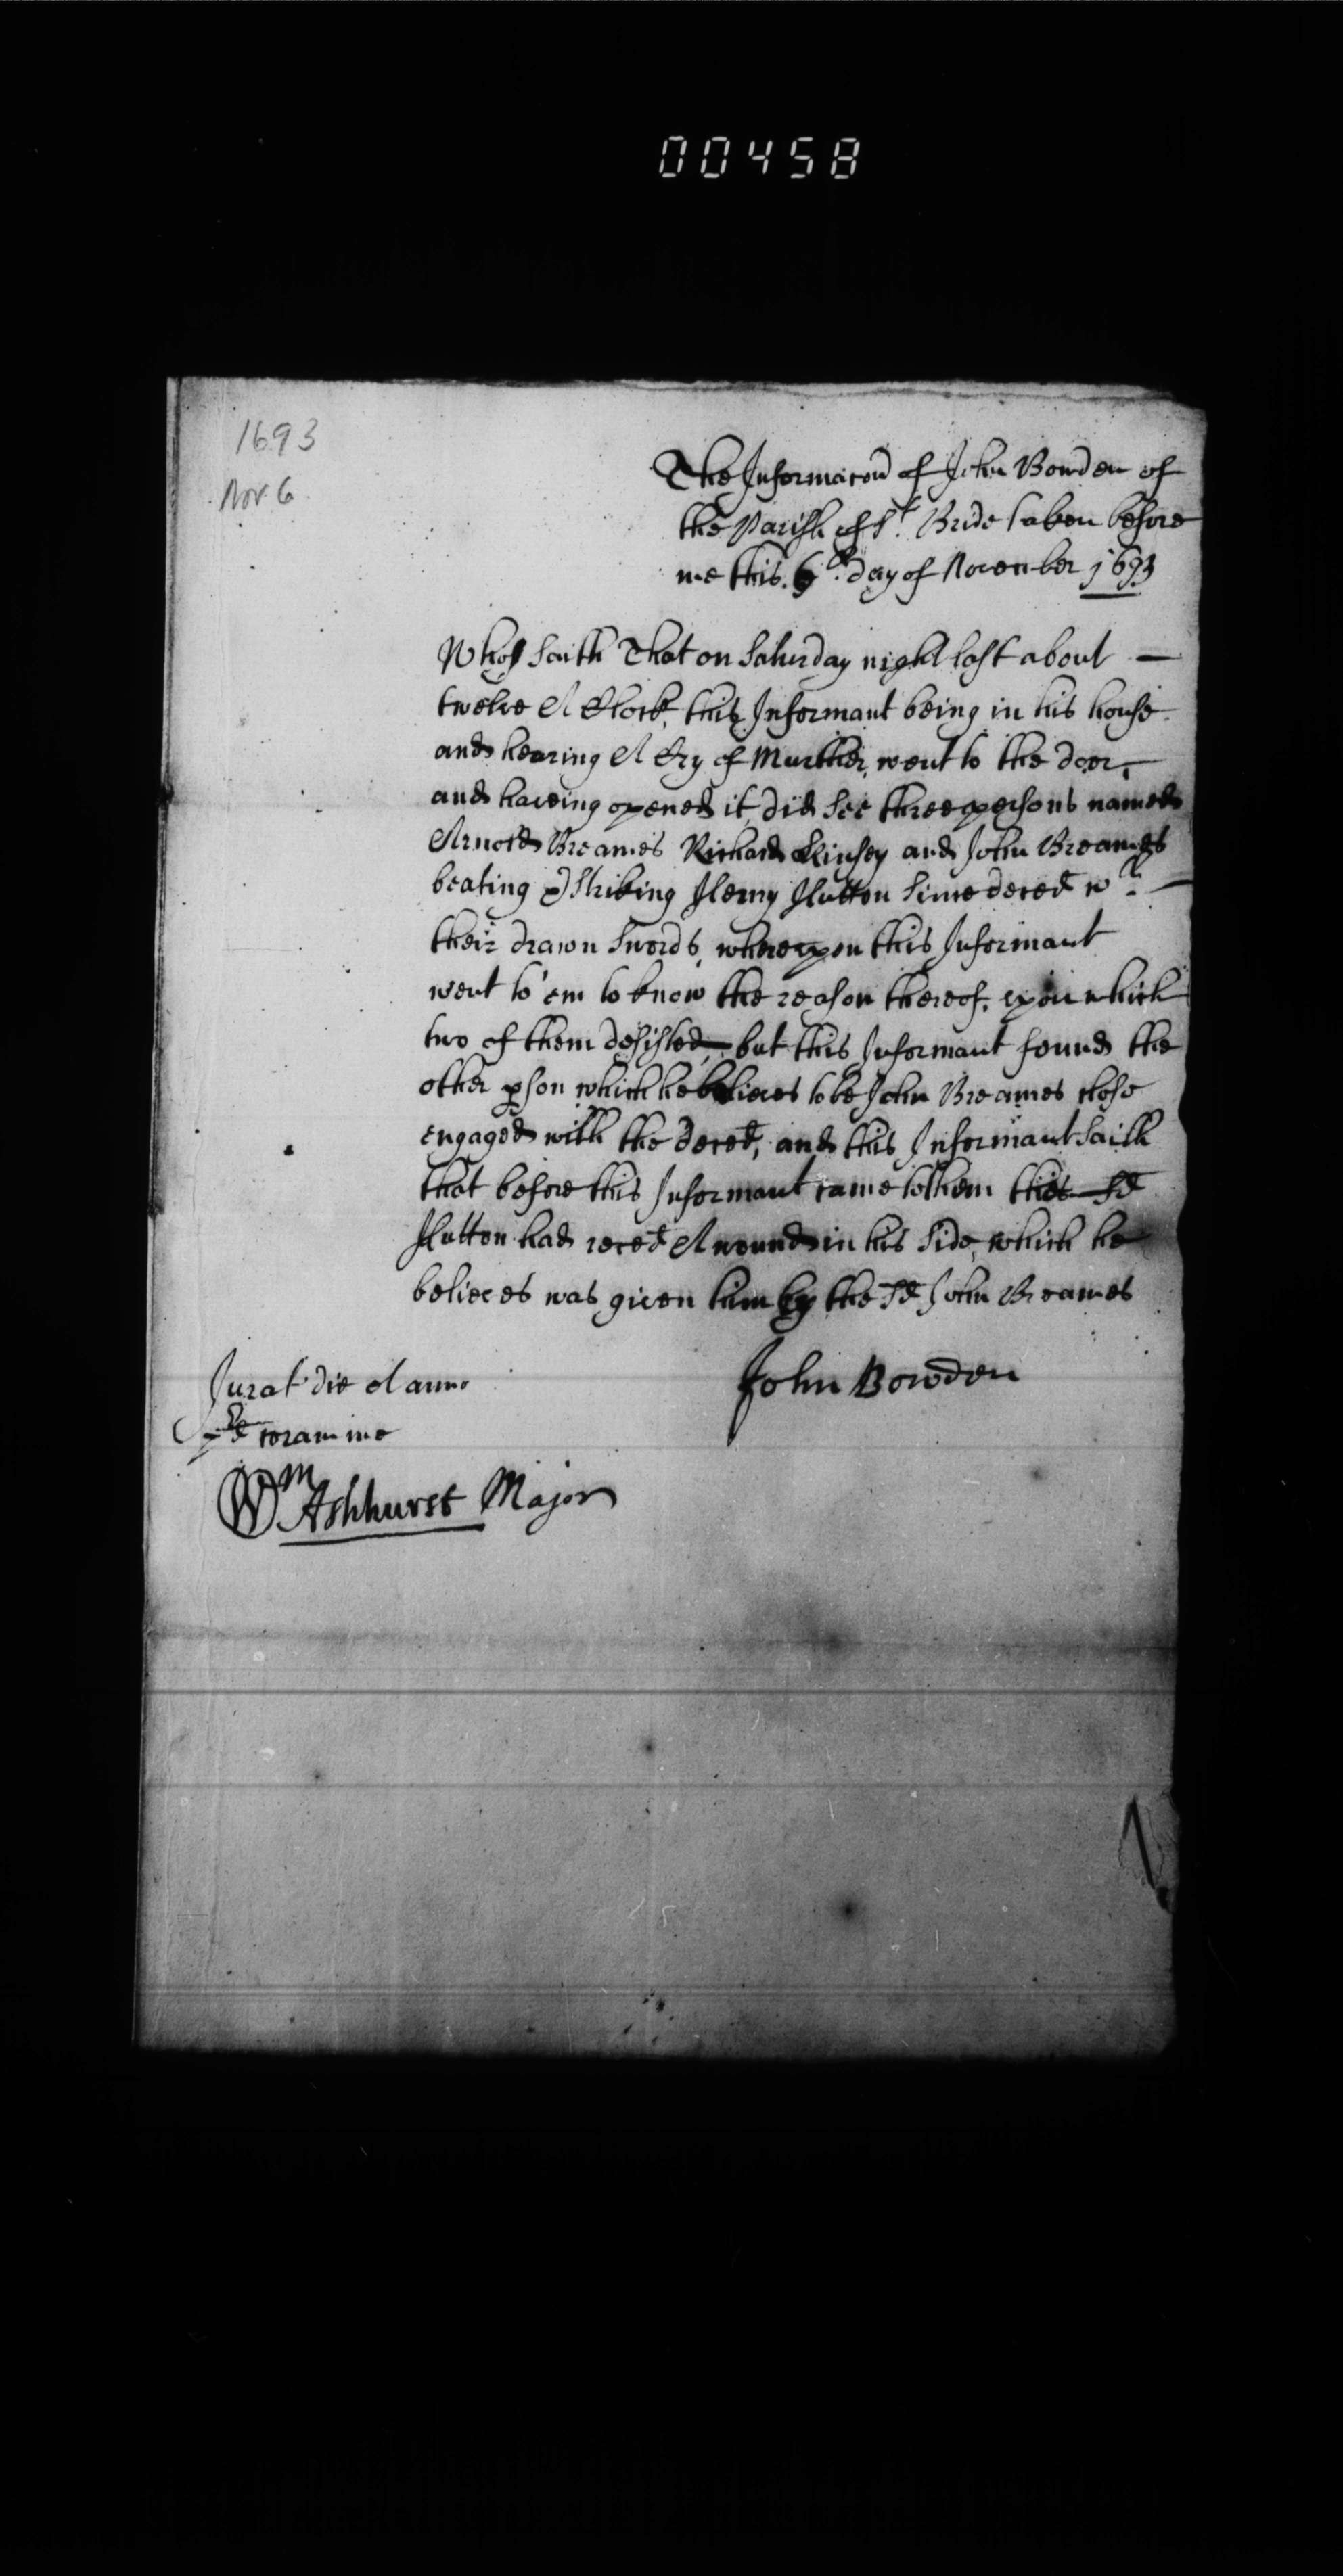 00458
1693
Nov 6
The Informacon of John Bowden of
the Parish of St. Bride taken before
me this 6th. day of November 1693
Who saith That on Saturday night last about —
twelve A Clock, this Informant being in his house
and hearing A Cry of Murther, went to the door,
and haveing opened it, did see three persons named
Arnold Breames Richard Kinsey and John Breames
beating & striking Henry Hutton since deced wth. —
their drawn swords, whereupon this Informant
went to 'em to know the reason thereof, upon which
two of them desisted, but this Informant found the
other pson which he believes to be John Breames close
engaged with the deced, and this Informant saith
that before this Informant came to them the sd
Hutton had reced A wound in his side, which he
believes was given him by the sd John Breames
John Bowden
Jurat die et anno
coram me
Wm Ashhurst Major